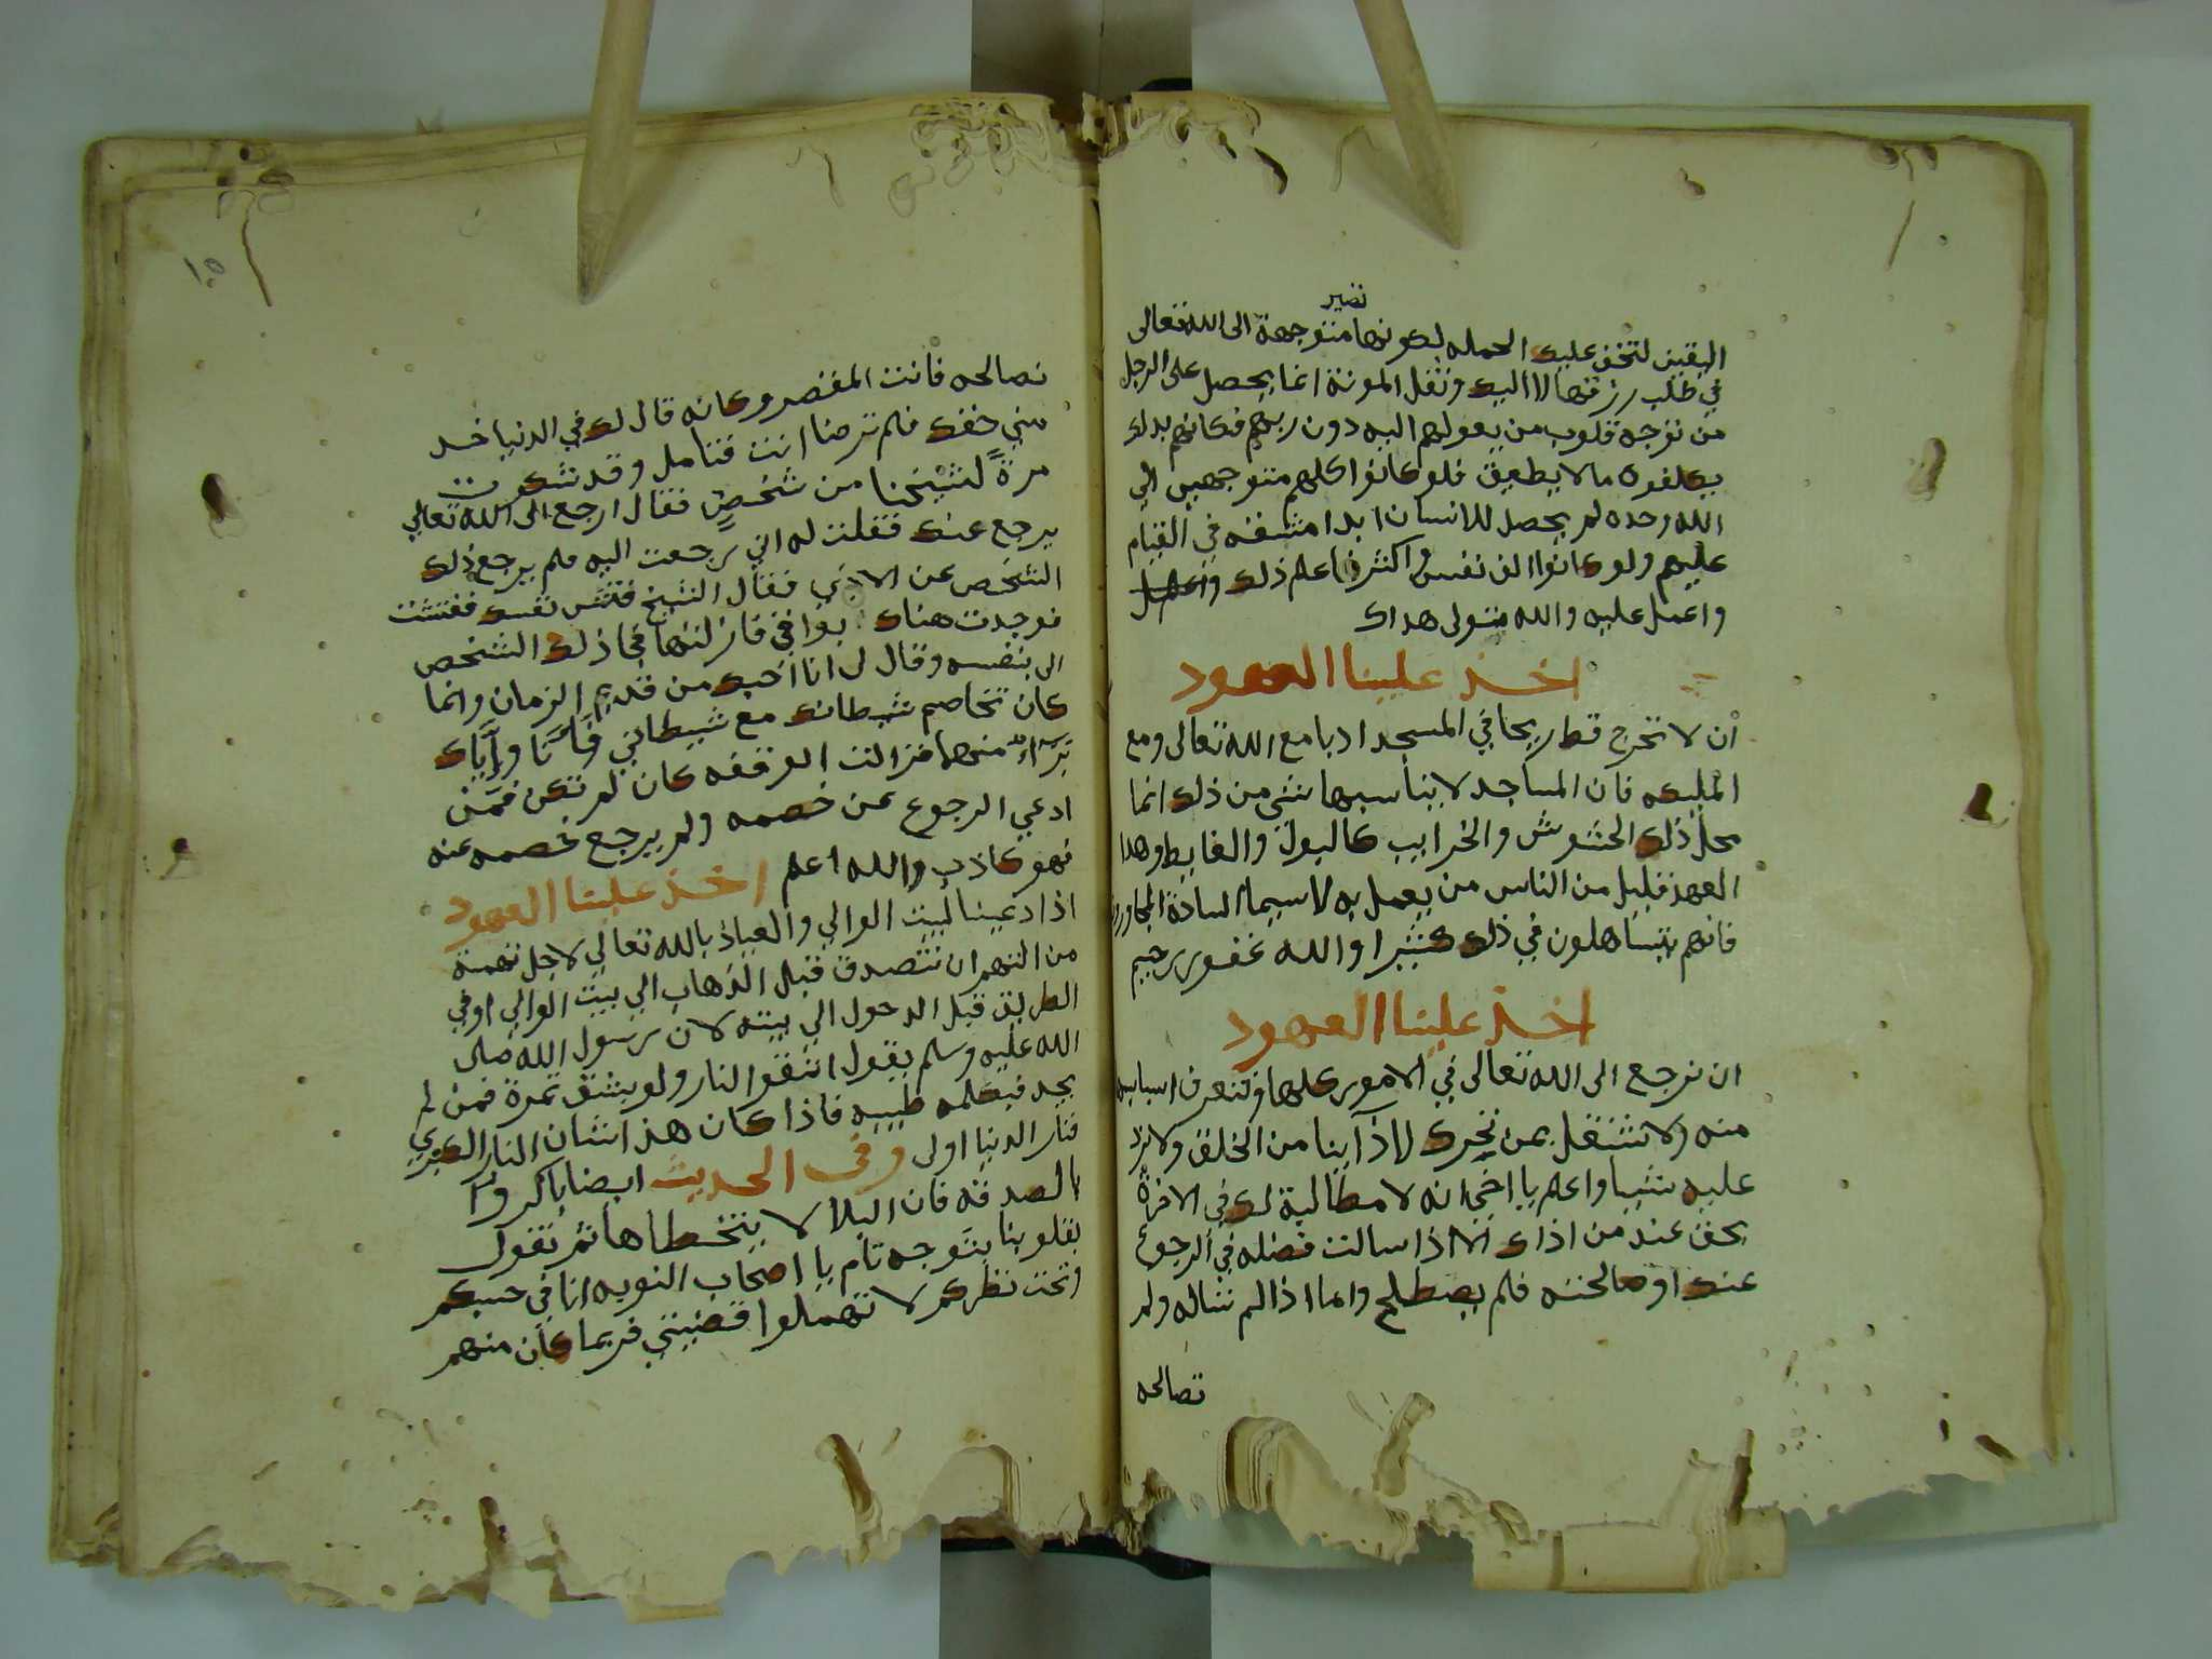 تصير
اليقين لتخف عليك الحمله لكونها متوجهة الى الله تعالى
في طلب رزقها لا اليك وثقل المونة انما يحصل على الرجل
من توجه قلوب من يعولهم اليه دون ربهم فكانهم بذلك
يكلفوه ما لا يطيق فلو كانوا كلهم متوجهين الي
الله وحده لم يحصل للانسان ابدا مشقة في القيام
عليهم ولو كانوا الف نفس واكثر فاعلم ذلك
واعمل عليه والله يتولى هداك
اخذ علينا العهود
ان لا نخرج قط ريحا في المسجد ادبا مع الله تعالى ومع
المليكه فان المساجد لا يناسبها شي من ذلك انما
محل ذلك الحشوش والخرايب كالبول والغايط وهدا
العهد قليل من الناس من يعمل به لاسيما السادة المجاورون
فانهم يتساهلون في ذلك كثيرا والله غفور رحيم
اخذ علينا العهود
ان نرجع الى الله تعالى في الامور كلها ونتعرف اسبابه
منه ولا نشتغل بمن تحرك لاذآينا من الخلق ولا نرد
عليه شيا واعلم يا اخي انه لا مطالبة لك في الاخرة
بحق عند من اذاك الا اذا سالت فضله في الرجوع
عنك او صالحته فلم يصطلح واما اذا لم تساله ولم
تصالحه
١٠٥
تصالحه فانت المقصر وكانه قال لك في الدنيا خد
مني حقك فلم ترضا انت فتامل وقد شكوت
مرة لشيخنا من شخص فقال ارجع الى الله تعالي
يرجع عنك فقلت له اني رجعت اليه فلم يرجع ذلك
الشخص عن الاذي فقال الشيخ فتش نفسك ففتشت
فوجدت هناك بواقي فازلتها فجا ذلك الشخص
الى بنفسه وقال لي انا احبك من قديم الزمان وانما
كان تخاصم شيطانك مع شيطاني وانا واياك
برآء منهما فزالت الوقفه كان لم تكن فمن
ادعي الرجوع عن خصمه ولم يرجع خصمه عنه
فهو كاذب والله اعلم اخذ علينا العهود
اذا دعينا لبيت الوالي والعياذ بالله تعالي لاجل تهمة
من التهم ان نتصدق قبل الذهاب الي بيت الوالي او في
الطريق قبل الدحول الي بيته لان رسول الله صلى
الله عليه وسلم يقول اتقوا النار ولو بشق تمرة فمن لم
يجد فبكلمه طيبه فاذا كان هذا شان النار الكبري
فنار الدنيا اولى وفى الحديث ايضا باكروا
بالصدقه فان البلا لا يتخطاها ثم نقول
بقلوبنا بتوجه تام يا اصحاب النوبه انا في حسبكم
وتحت نظركم لا تهملوا قضيتي فربما كان منهم